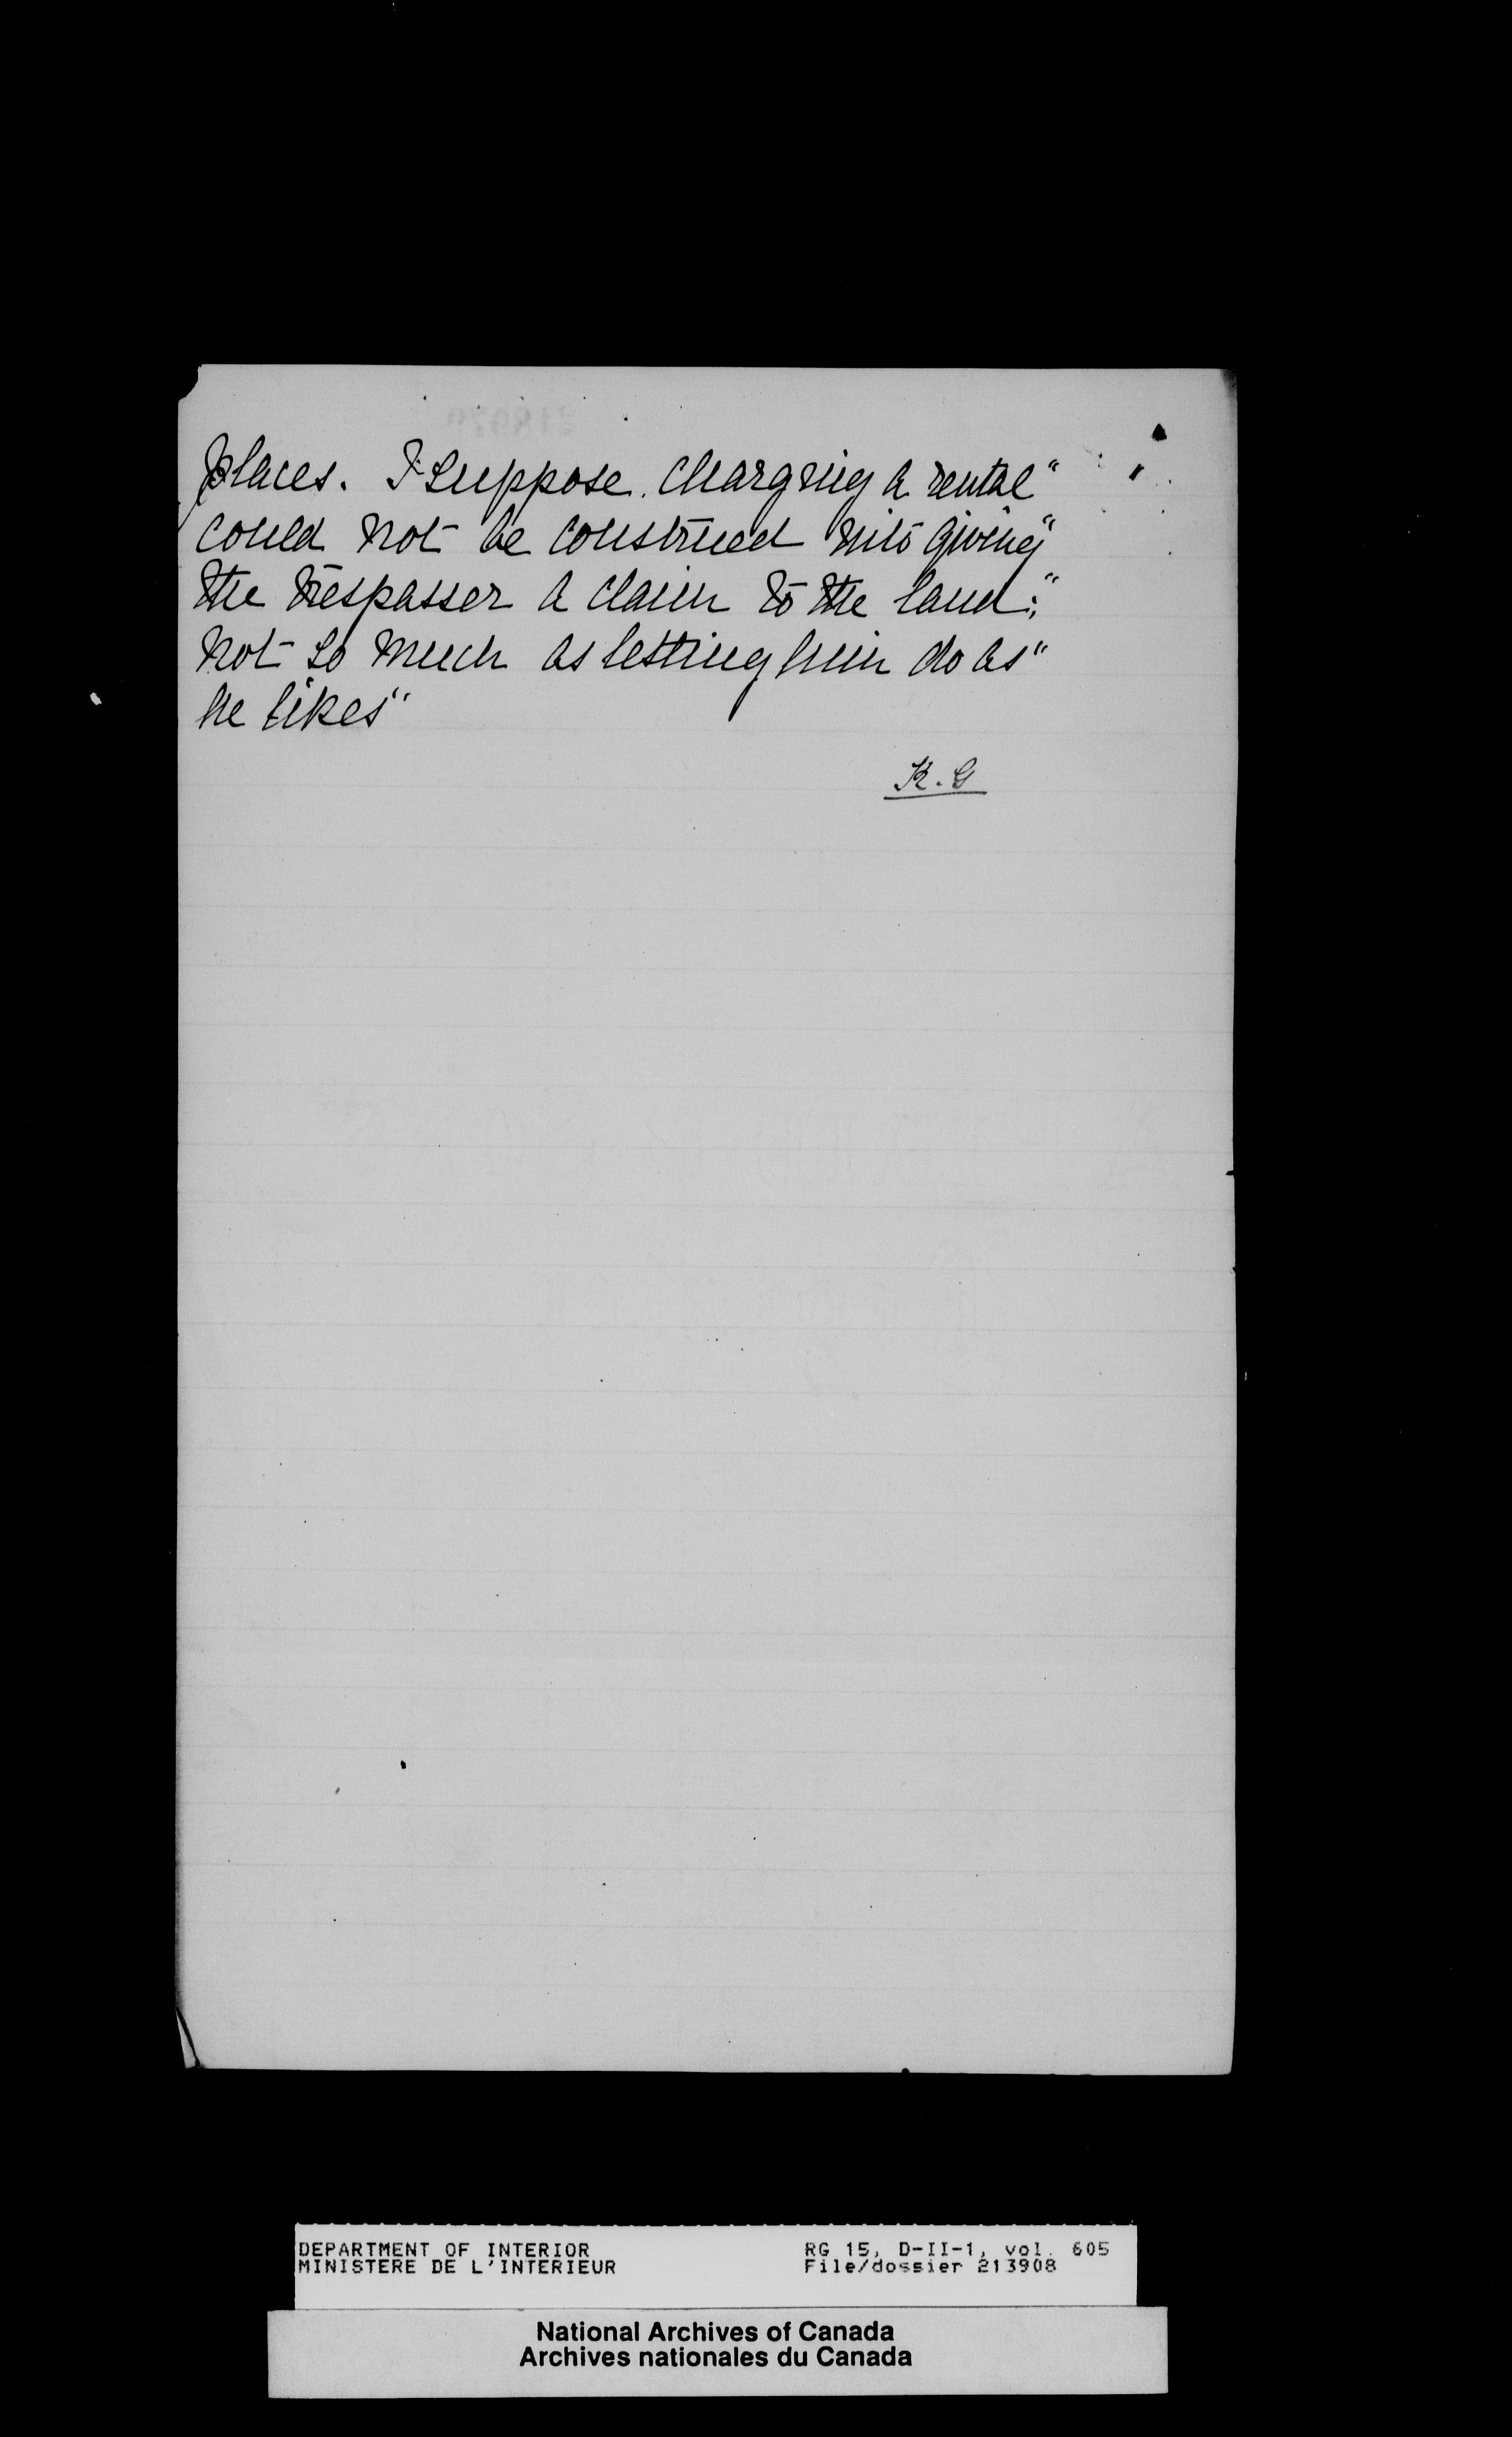 places. I suppose charging a rental"
could not be construed into giving"
the trespasser a claim to the land:"
not so much as letting him do as"
he likes"
K. G
DEPARTMENT OF INTERIOR
MINISTERE DE L'INTERIEUR
RG 15, D-II-1, vol. 605
File/dossier 213908
National Archives of Canada
Archives nationales du Canada